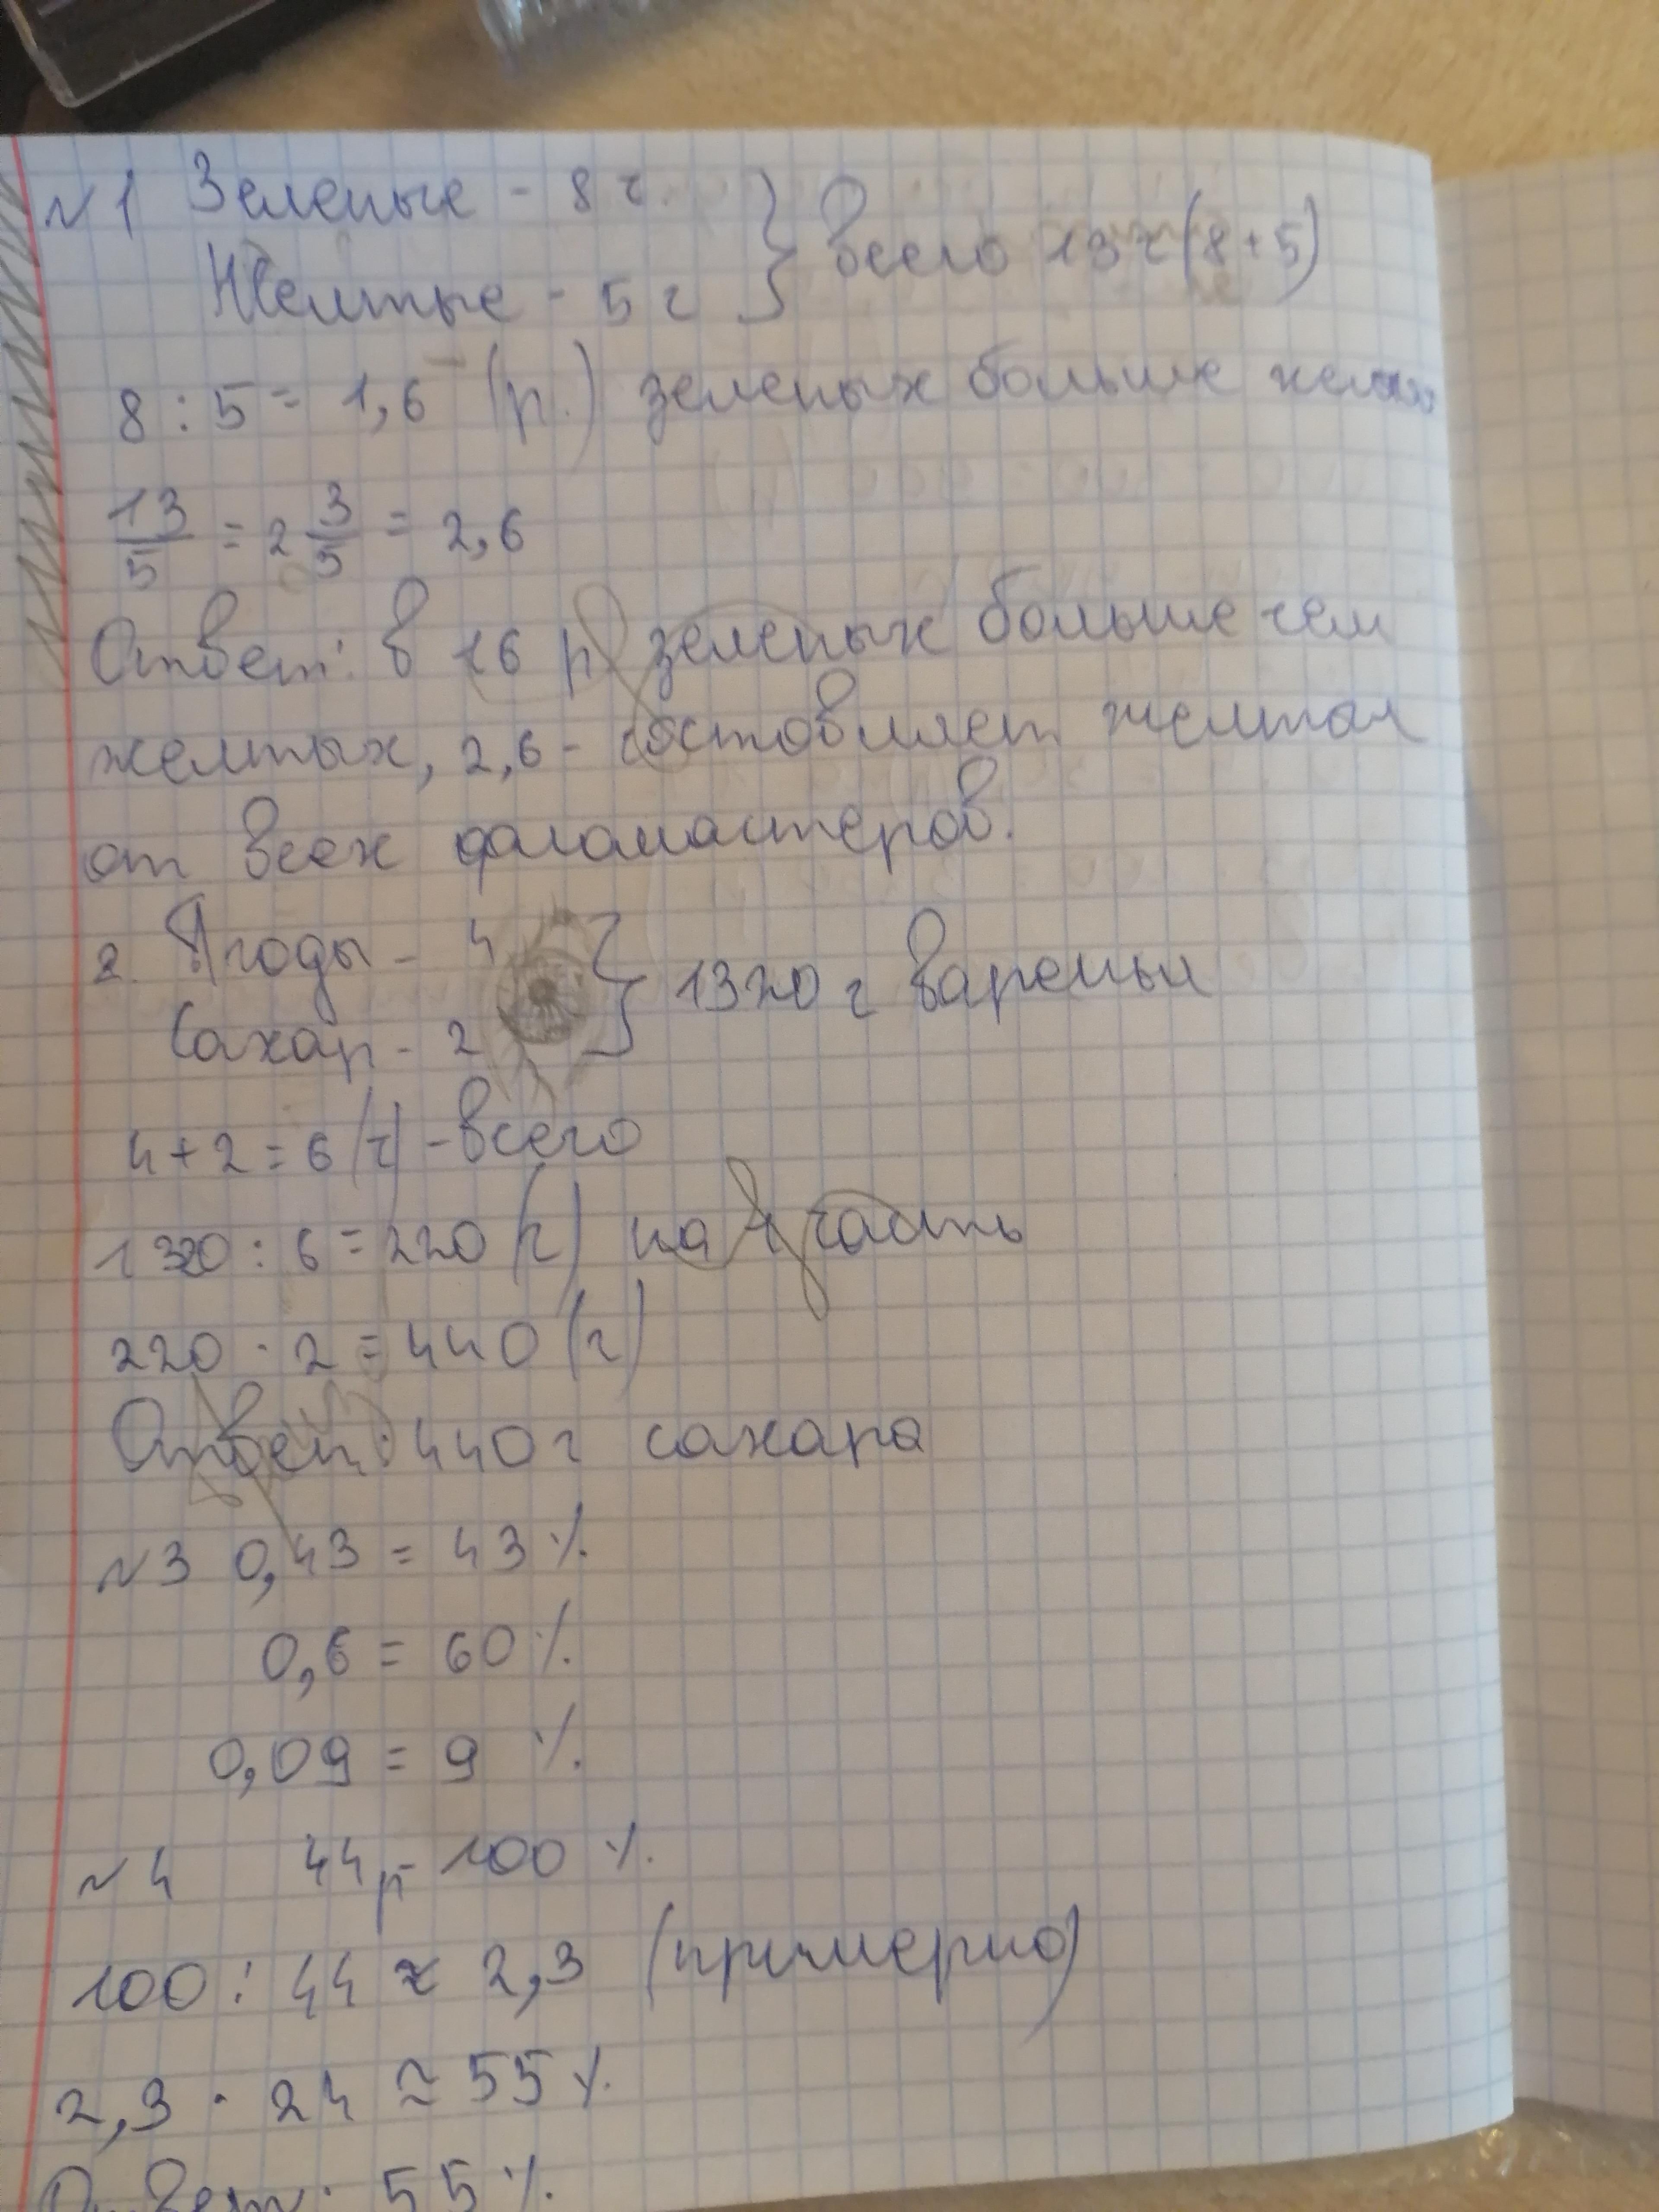 №1 Зеленые - 8 ч.
Желтые - 5 ч } всего 13 ч (8+5)
8 : 5 = 1,6 (р.) зеленых больше желтых
13/5 = 2 3/5 = 2,6
Ответ: в 16 р зеленых больше чем
желтых, 2,6 - состовляет желтая
от всех фаломастеров.
2. Ягоды - 4
Сахар - 2 } 1320 г варенья
4 + 2 = 6 (ч) - всего
1320 : 6 = 220 (г) на 1 часть
220 · 2 = 440 (г)
Ответ: 440 г сахара
№3 0,43 = 43 %
0,6 = 60 %
0,09 = 9 %
№4 44 р - 100 %
100 : 44 ≈ 2,3 (примерно)
2,3 · 24 ≈ 55 %
Ответ: 55 %